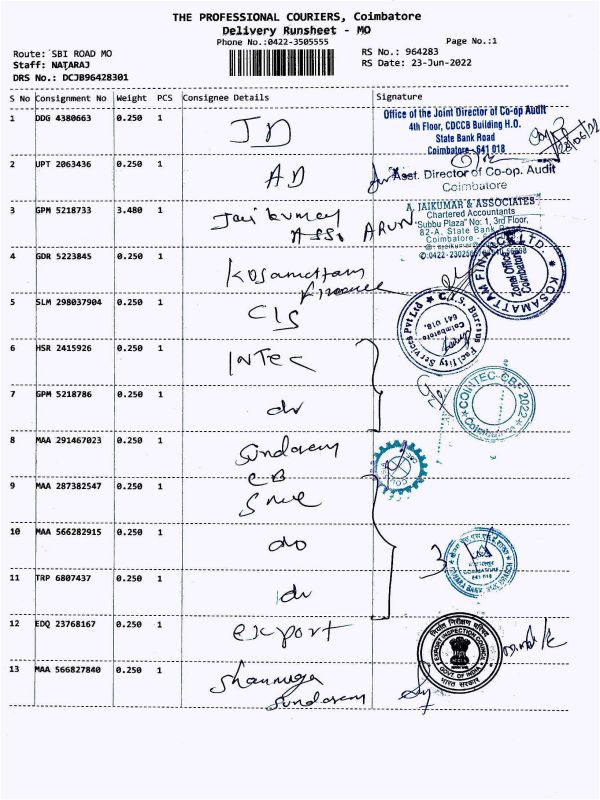 THE PROFESSIONAL COURIERS, Coimbatore
Delivery Runsheet - MO
Phone No.:0422-3505555
Page No.:1
Route: SBI ROAD MO
RS No.: 964283
Staff: NATARAJ
RS Date: 23-Jun-2022
DRS No.: DCJB96428301
S No Consignment No Weight PCS Consignee Details Signature
1 DDG 4380663 0.250 1 JD
Office of the Joint Director of Co-op Audit
4th Floor, CDCCB Building H.O.
State Bank Road
Coimbatore - 641 018
2 UPT 2063436 0.250 1 AD
Asst. Director of Co-op. Audit
Coimbatore
3 GPM 5218733 3.480 1 Jai kumar
ASSO ARUN
A. JAIKUMAR & ASSOCIATES
Chartered Accountants
"Subbu Plaza" No: 1, 3rd Floor,
82-A, State Bank Road
Coimbatore
4 GDR 5223845 0.250 1 Kosamattam
finance
KOSAMATTAM FINANCE LTD.
Zonal Office
Coimbatore
5 SLM 298037904 0.250 1 CIS
C.I.S. Bureaus Facility Services Pvt Ltd
Coimbatore
641 018.
6 HSR 2415926 0.250 1 INTEC
7 GPM 5218786 0.250 1 do
COINTEC-CBF 2022
Coimbatore
8 MAA 291467023 0.250 1 Sundaram
CB
9 MAA 287382547 0.250 1 SME
10 MAA 566282915 0.250 1 do
3
CANARA BANK
COIMBATORE
641 018
11 TRP 6807437 0.250 1 do
12 EDQ 23768167 0.250 1 export
निर्यात निरीक्षण परिषद
EXPORT INSPECTION COUNCIL
GOVT OF INDIA
भारत सरकार
13 MAA 566827840 0.250 1 Shanmuga
Sundaram